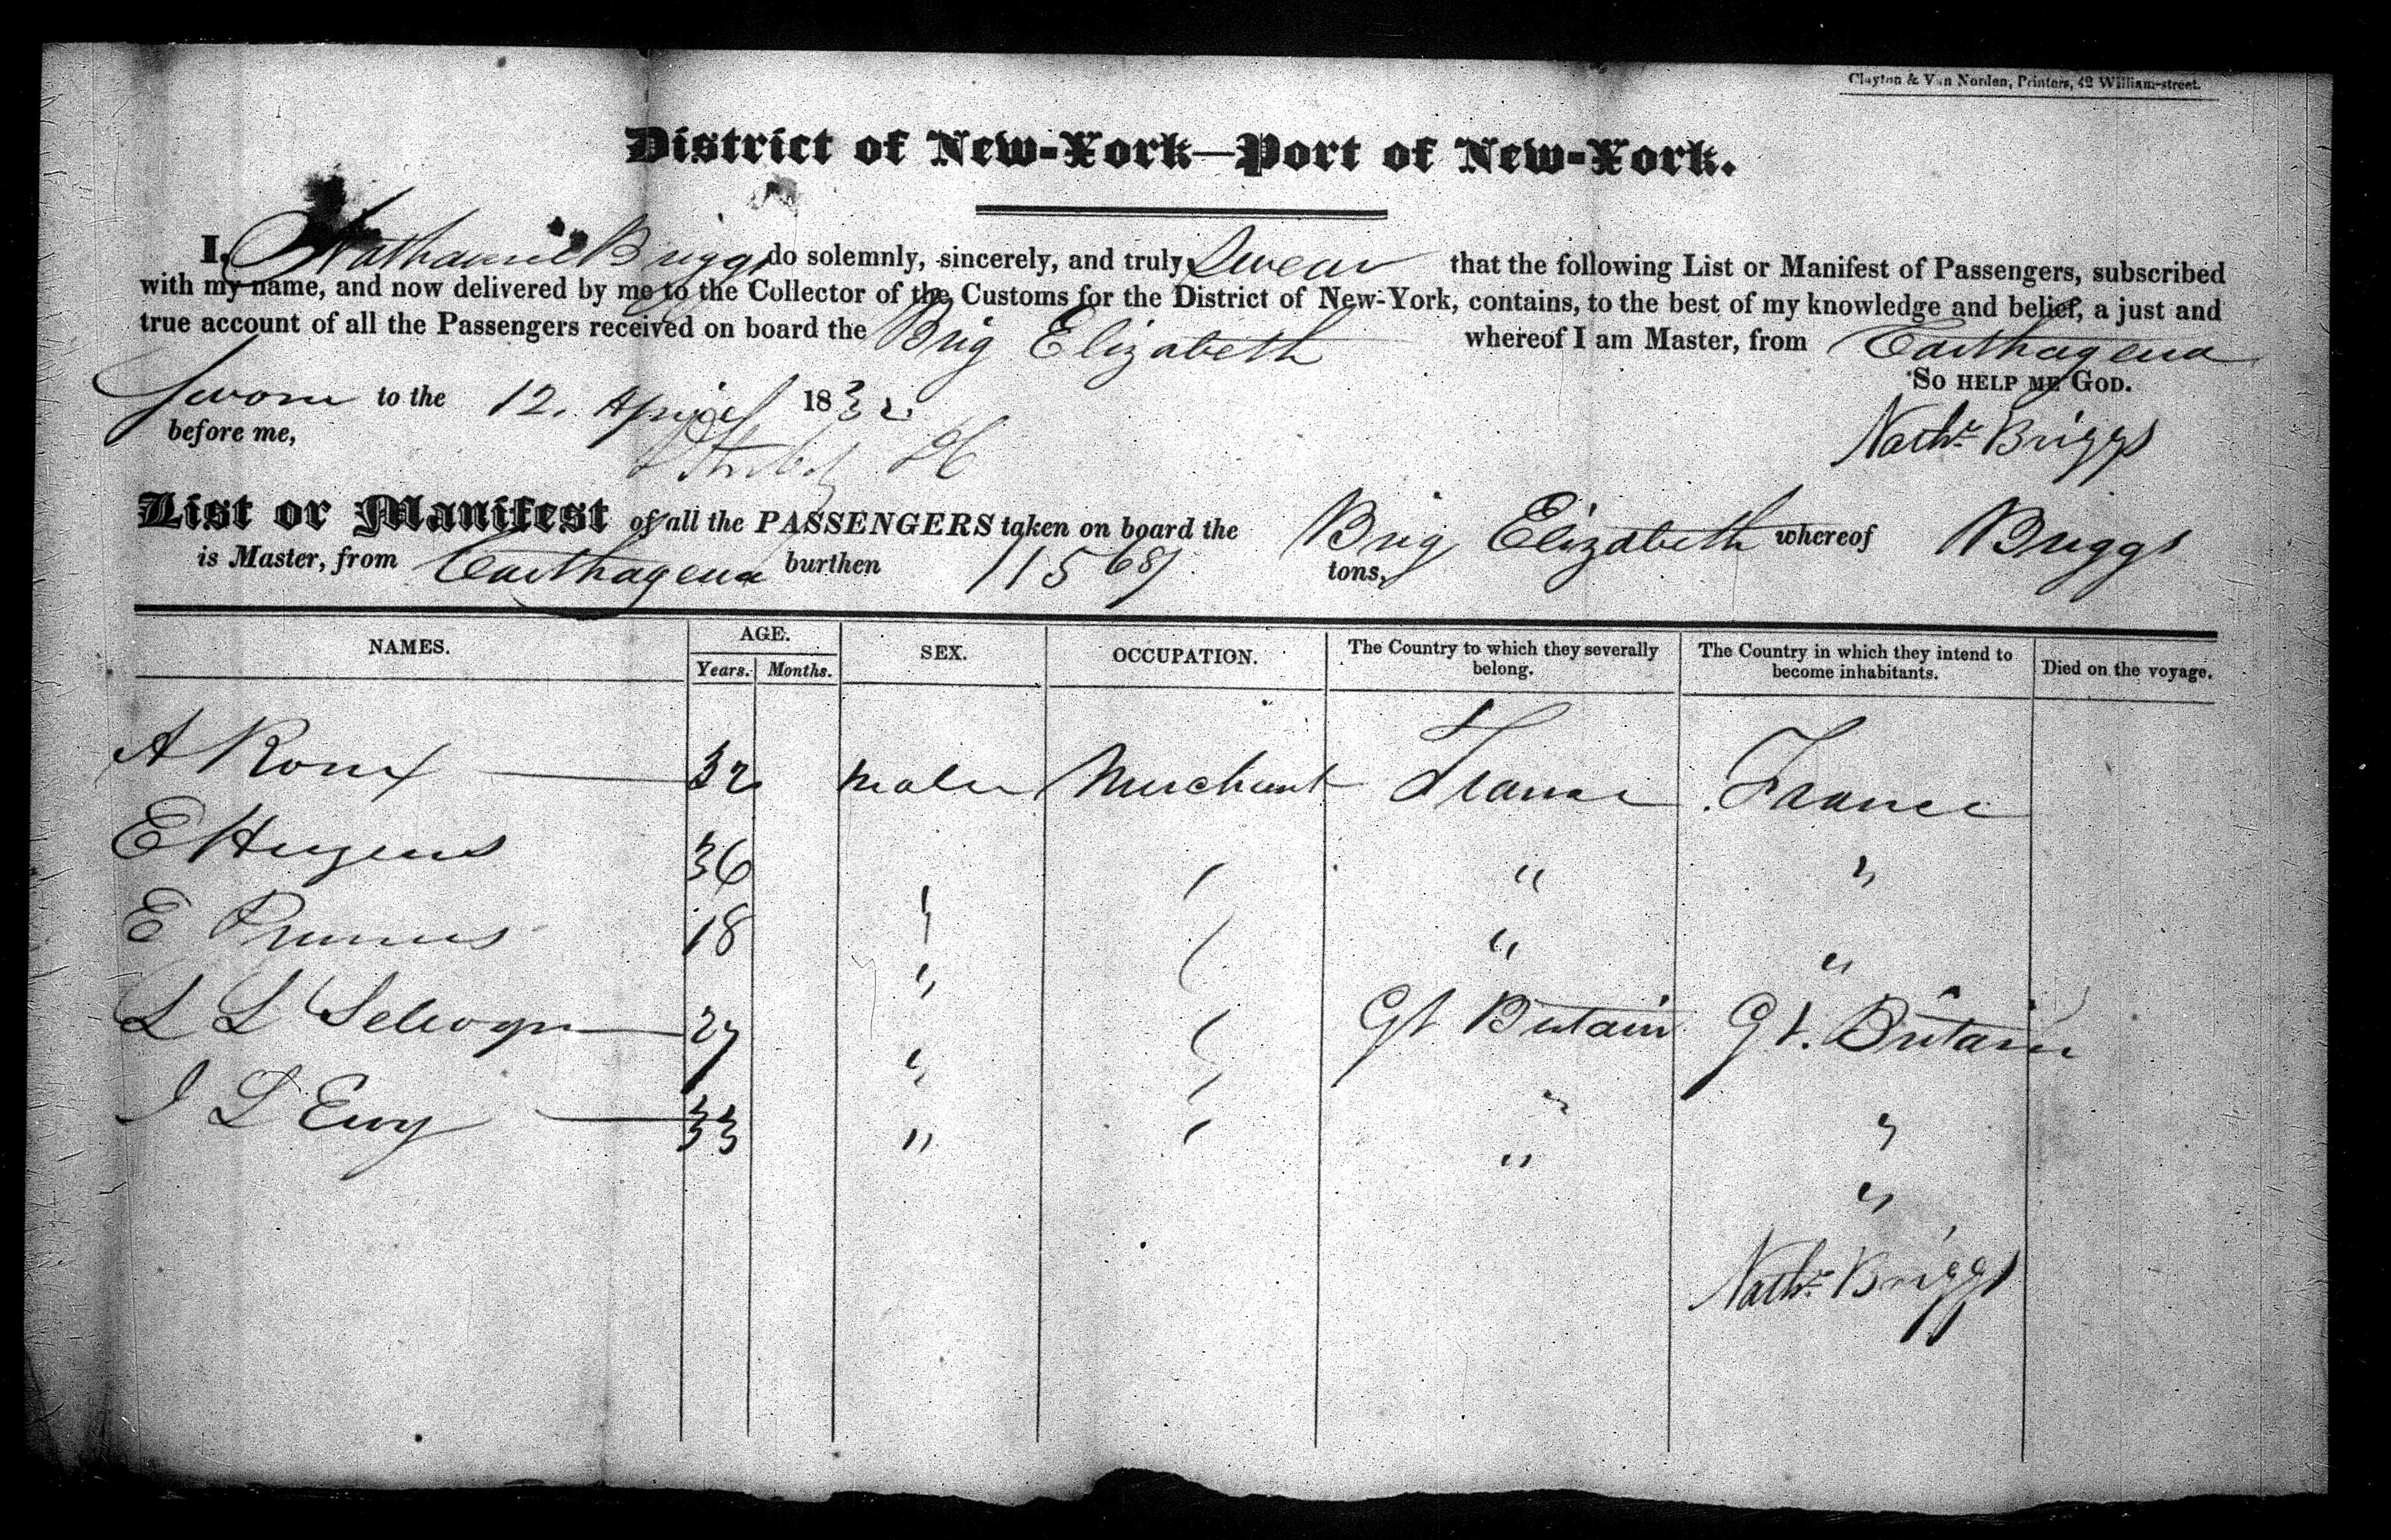 Clayton & Van Norden, Printers, 42 William-street.
District of New-York—Port of New-York.
I, Nathaniel Briggs do solemnly, sincerely, and truly Swear that the following List or Manifest of Passengers, subscribed
with my name, and now delivered by me to the Collector of the Customs for the District of New-York, contains, to the best of my knowledge and belief, a just and
true account of all the Passengers received on board the Brig Elizabeth whereof I am Master, from Carthagena
So help me God.
Sworn to the 12. April 1832.
before me,
Nathl Briggs
List or Manifest of all the PASSENGERS taken on board the Brig Elizabeth whereof Briggs
is Master, from Carthagena burthen 115 tons,
NAMES. AGE. SEX. OCCUPATION. The Country to which they severally belong. The Country in which they intend to become inhabitants. Died on the voyage.
Years. Months.
A Roux 32 Male Merchant France France
E Hugens 36 " "
E 18 " " "
L L Selwyn 27 " Gt Britain Gt. Britain
J L 33 " " "
"
Nathl Briggs